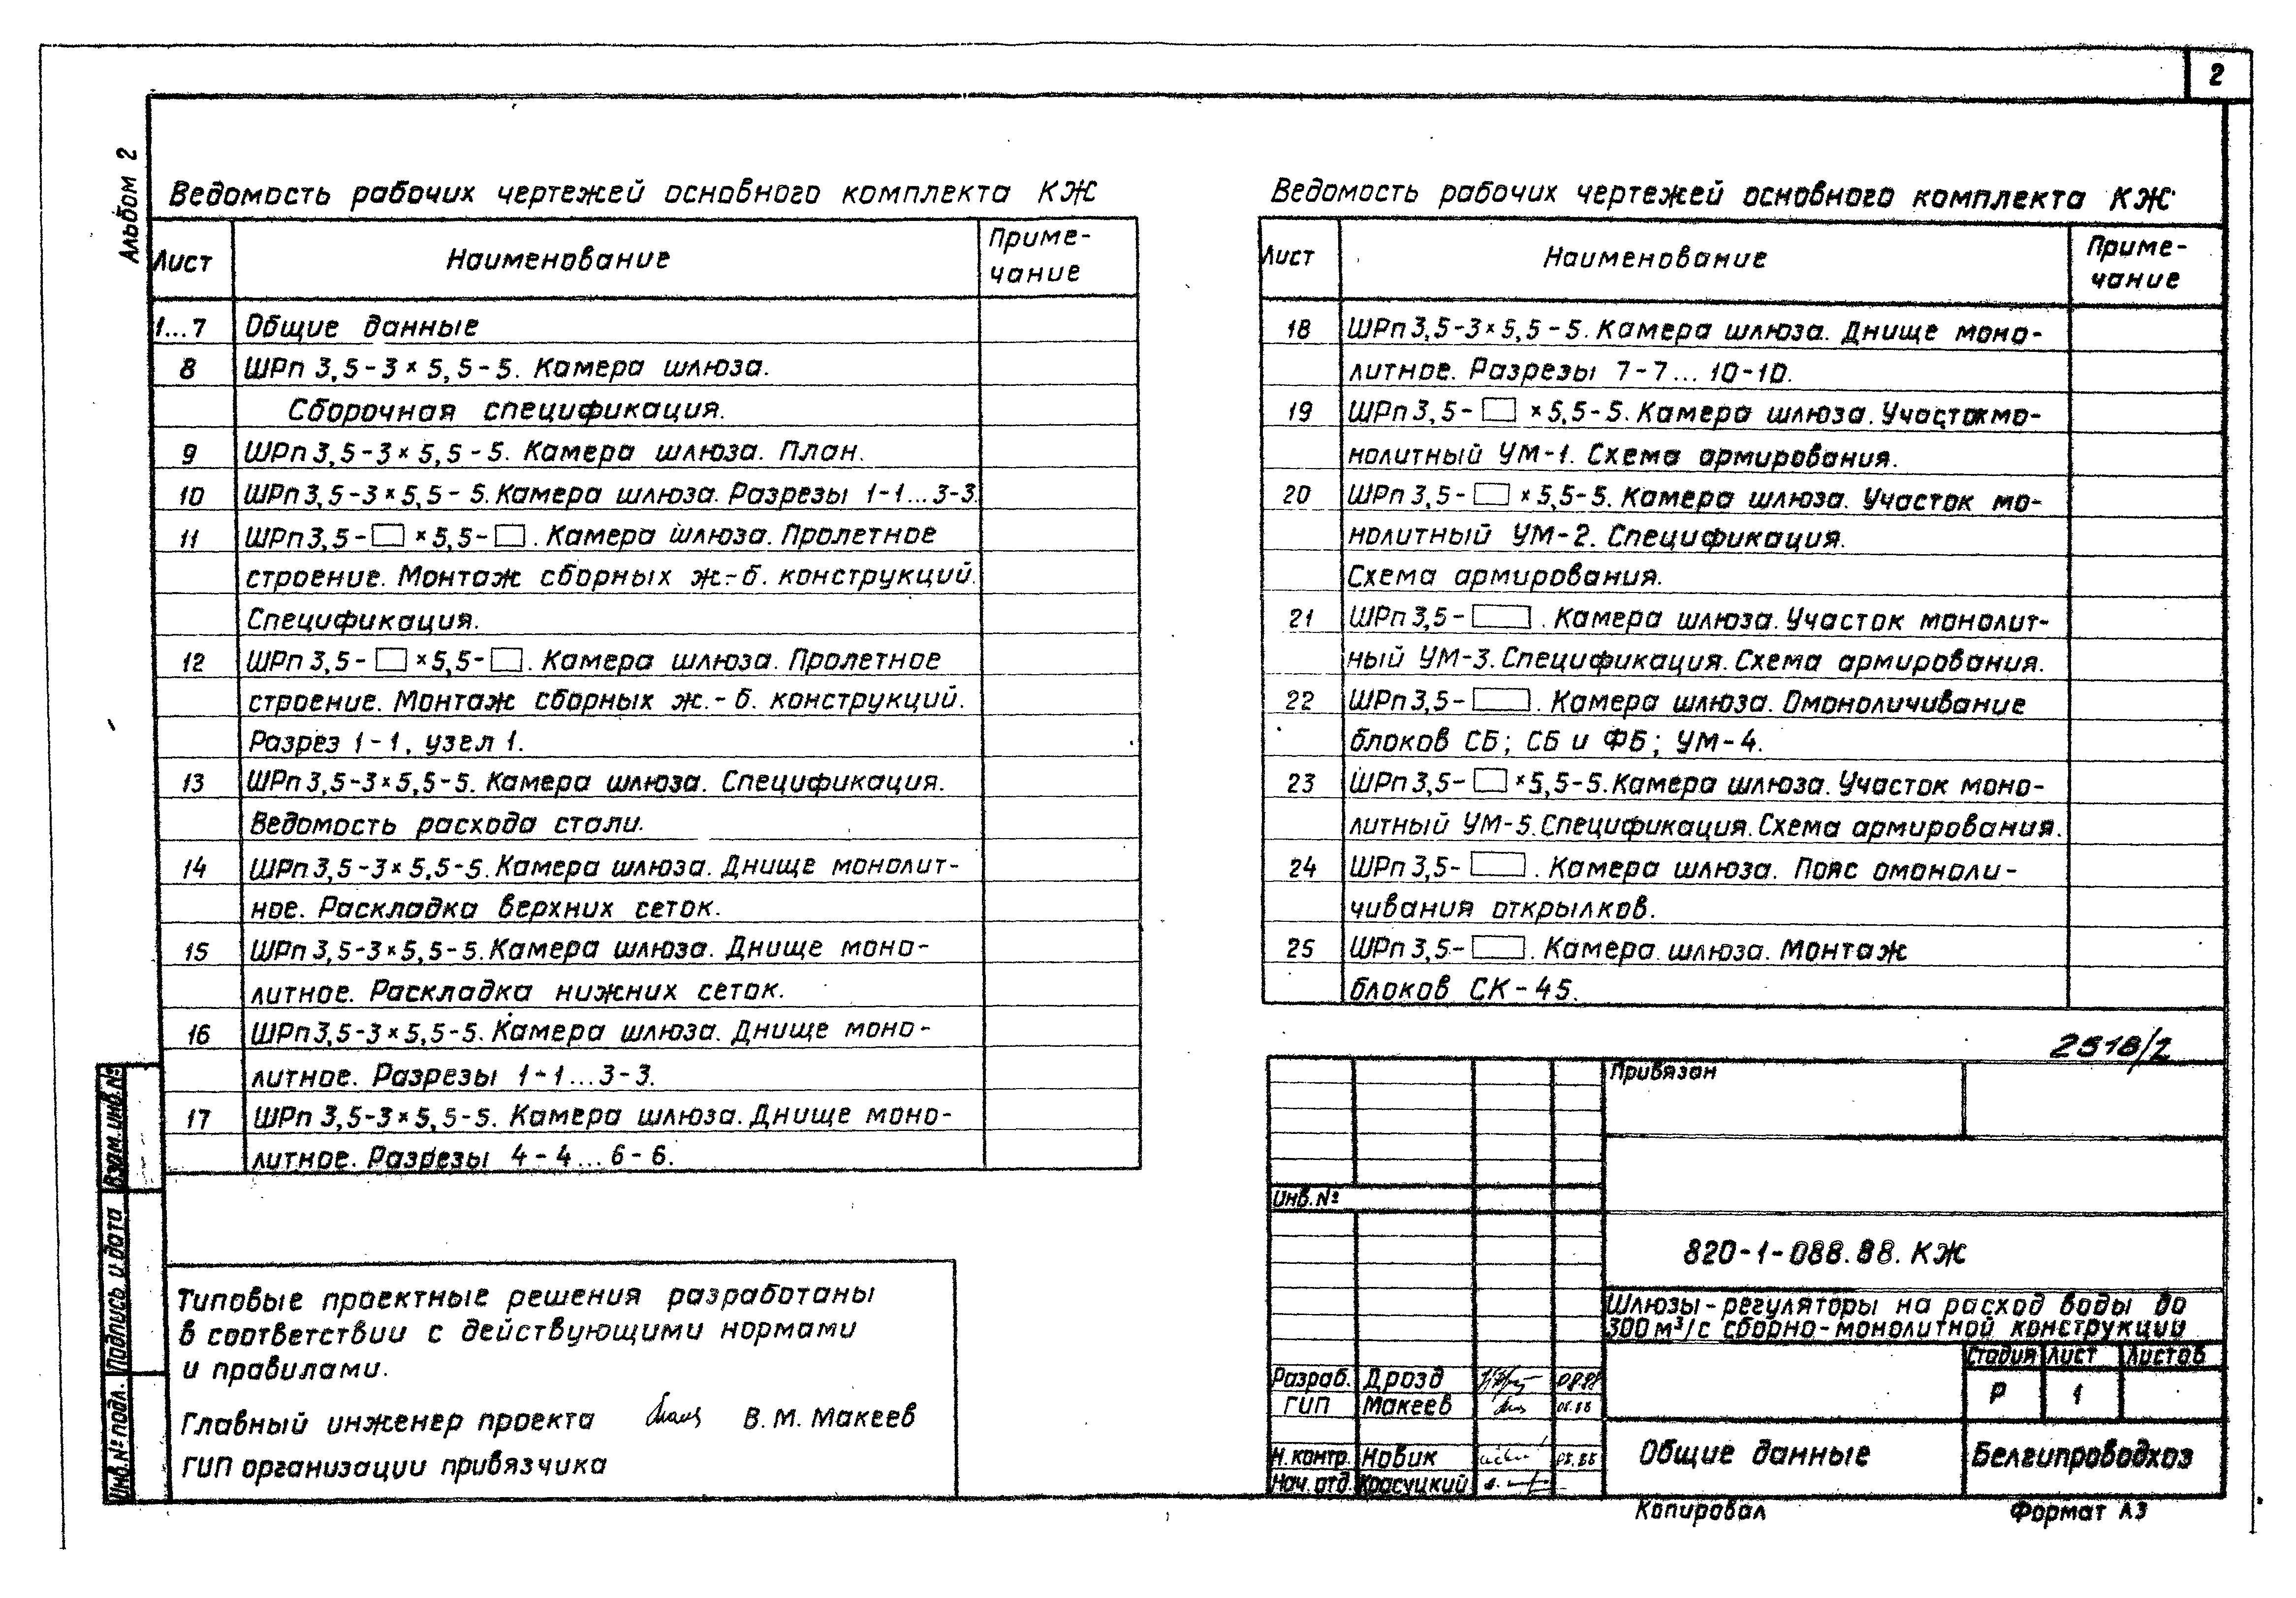 2
Альбом 2
Ведомость рабочих чертежей основного комплекта КЖ
Лист Наименование Приме-
чание
1...7 Общие данные
8 ШРп 3,5-3×5,5-5. Камера шлюза.
Сборочная спецификация.
9 ШРп 3,5-3×5,5-5. Камера шлюза. План.
10 ШРп 3,5-3×5,5-5. Камера шлюза. Разрезы 1-1...3-3.
11 ШРп 3,5-□×5,5-□. Камера шлюза. Пролетное
строение. Монтаж сборных ж.-б. конструкций.
Спецификация.
12 ШРп 3,5-□×5,5-□. Камера шлюза. Пролетное
строение. Монтаж сборных ж.-б. конструкций.
Разрез 1-1, узел 1.
13 ШРп 3,5-3×5,5-5. Камера шлюза. Спецификация.
Ведомость расхода стали.
14 ШРп 3,5-3×5,5-5. Камера шлюза. Днище монолит-
ное. Раскладка верхних сеток.
15 ШРп 3,5-3×5,5-5. Камера шлюза. Днище моно-
литное. Раскладка нижних сеток.
16 ШРп 3,5-3×5,5-5. Камера шлюза. Днище моно-
литное. Разрезы 1-1...3-3.
17 ШРп 3,5-3×5,5-5. Камера шлюза. Днище моно-
литное. Разрезы 4-4...6-6.
Ведомость рабочих чертежей основного комплекта КЖ
Лист Наименование Приме-
чание
18 ШРп 3,5-3×5,5-5. Камера шлюза. Днище моно-
литное. Разрезы 7-7...10-10.
19 ШРп 3,5-□×5,5-5. Камера шлюза. Участок мо-
нолитный УМ-1. Схема армирования.
20 ШРп 3,5-□×5,5-5. Камера шлюза. Участок мо-
нолитный УМ-2. Спецификация.
Схема армирования.
21 ШРп 3,5-□. Камера шлюза. Участок монолит-
ный УМ-3. Спецификация. Схема армирования.
22 ШРп 3,5-□. Камера шлюза. Омоноличивание
блоков СБ; СБ и ФБ; УМ-4.
23 ШРп 3,5-□×5,5-5. Камера шлюза. Участок моно-
литный УМ-5. Спецификация. Схема армирования.
24 ШРп 3,5-□. Камера шлюза. Пояс омоноли-
чивания открылков.
25 ШРп 3,5-□. Камера шлюза. Монтаж
блоков СК-45.
2518/2
Типовые проектные решения разработаны
в соответствии с действующими нормами
и правилами.
Главный инженер проекта В. М. Макеев
ГИП организации привязчика
Взам. инв. №
Подпись и дата
Инв. № подл.
Привязан
Инв. №
820-1-088.88. КЖ
Шлюзы-регуляторы на расход воды до
300 м³/с сборно-монолитной конструкции
Стадия Лист Листов
Р 1
Разраб. Дрозд 08.88
ГИП Макеев 08.88
Н. контр. Новик 08.88
Нач. отд. Красуцкий
Общие данные
Белгипроводхоз
Копировал Формат А3